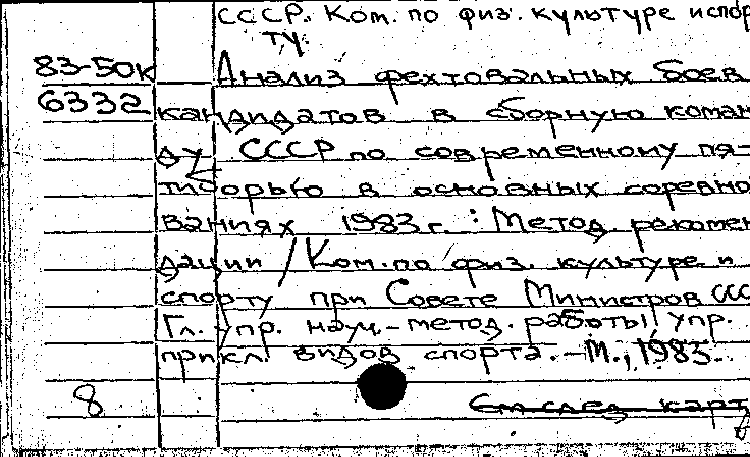 СССР. Ком. по физ. культуре и спор
ту.
83-50к Анализ фехтовальных боев
6332 кандидатов в сборную коман
ду СССР по современному пя-
тиборью в основных соревно
ваниях 1983 г. : Метод. рекомен
дации / Ком. по физ. культуре и
спорту при Совете Министров ССС
Гл. упр. науч.-метод. работы, Упр.
прикл. видов спорта. - М., 1983.
8 См след карт